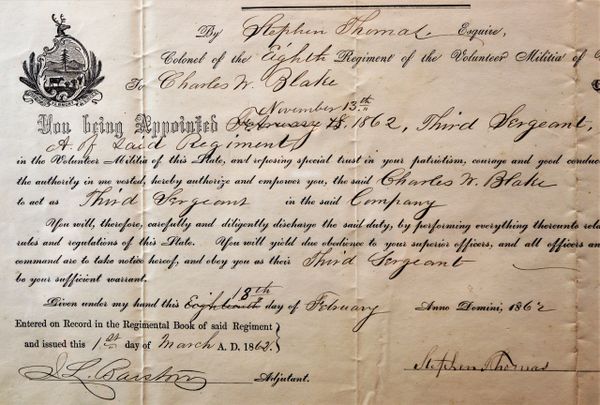 By Stephen Thomas. Esquire,
Colonel of the Eighth Regiment of the Volunteer Militia of
To Charles W. Blake
November 13th
You being Appointed February 18, 1862, Third Sergeant,
A of said Regiment
in the Volunteer Militia of this State, and reposing special trust in your patriotism, courage and good conduc
the authority in me vested, hereby authorize and empower you, the said Charles W. Blake
to act as Third Sergeant in the said Company
You will, therefore, carefully and diligently discharge the said duty, by performing everything thereunto rela
rules and regulations of this State. You will yield due obedience to your superior officers, and all officers an
command are to take notice hereof, and obey you as their Third Sergeant
be your sufficient warrant.
18th
Given under my hand this Eighteenth day of February Anno Domini, 1862
Entered on Record in the Regimental Book of said Regiment
and issued this 1st day of March A. D. 1862.
J. L. Barstow Adjutant.
Stephen Thomas